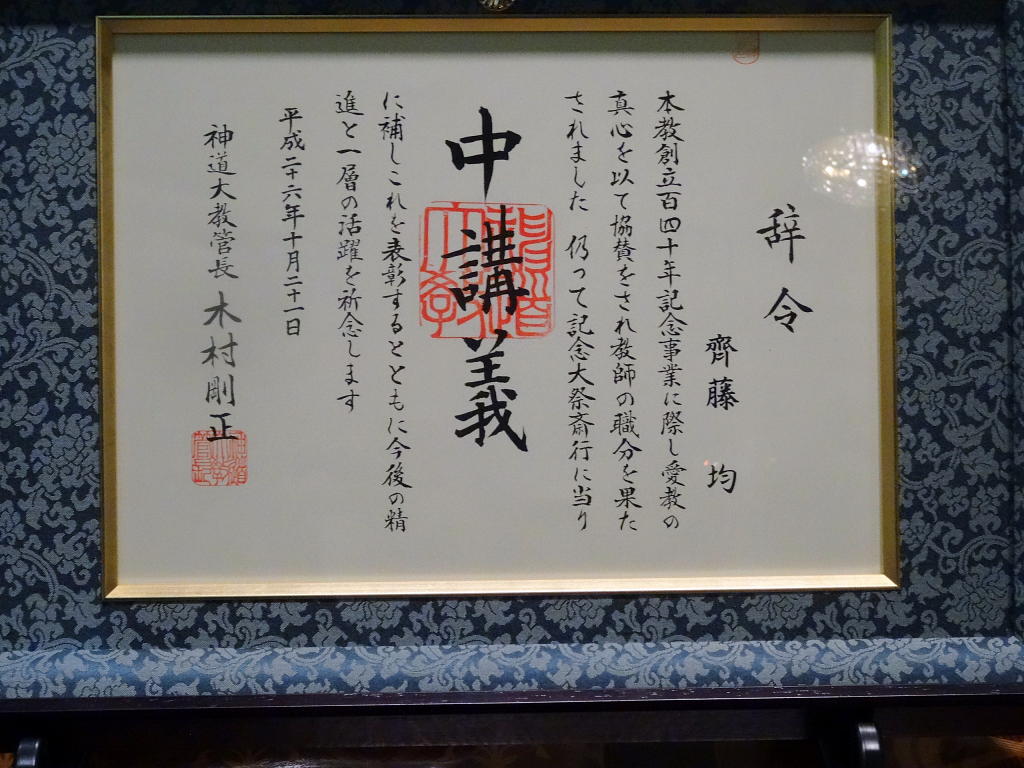 辞令
齊藤 均
本教創立百四十年記念事業に際し愛教の
真心を以て協賛をされ教師の職分を果た
されました 仍つて記念大祭斎行に当り
中講義
に補しこれを表彰するとともに今後の精
進と一層の活躍を祈念します
平成二十六年十月二十一日
神道大教管長 木村剛正